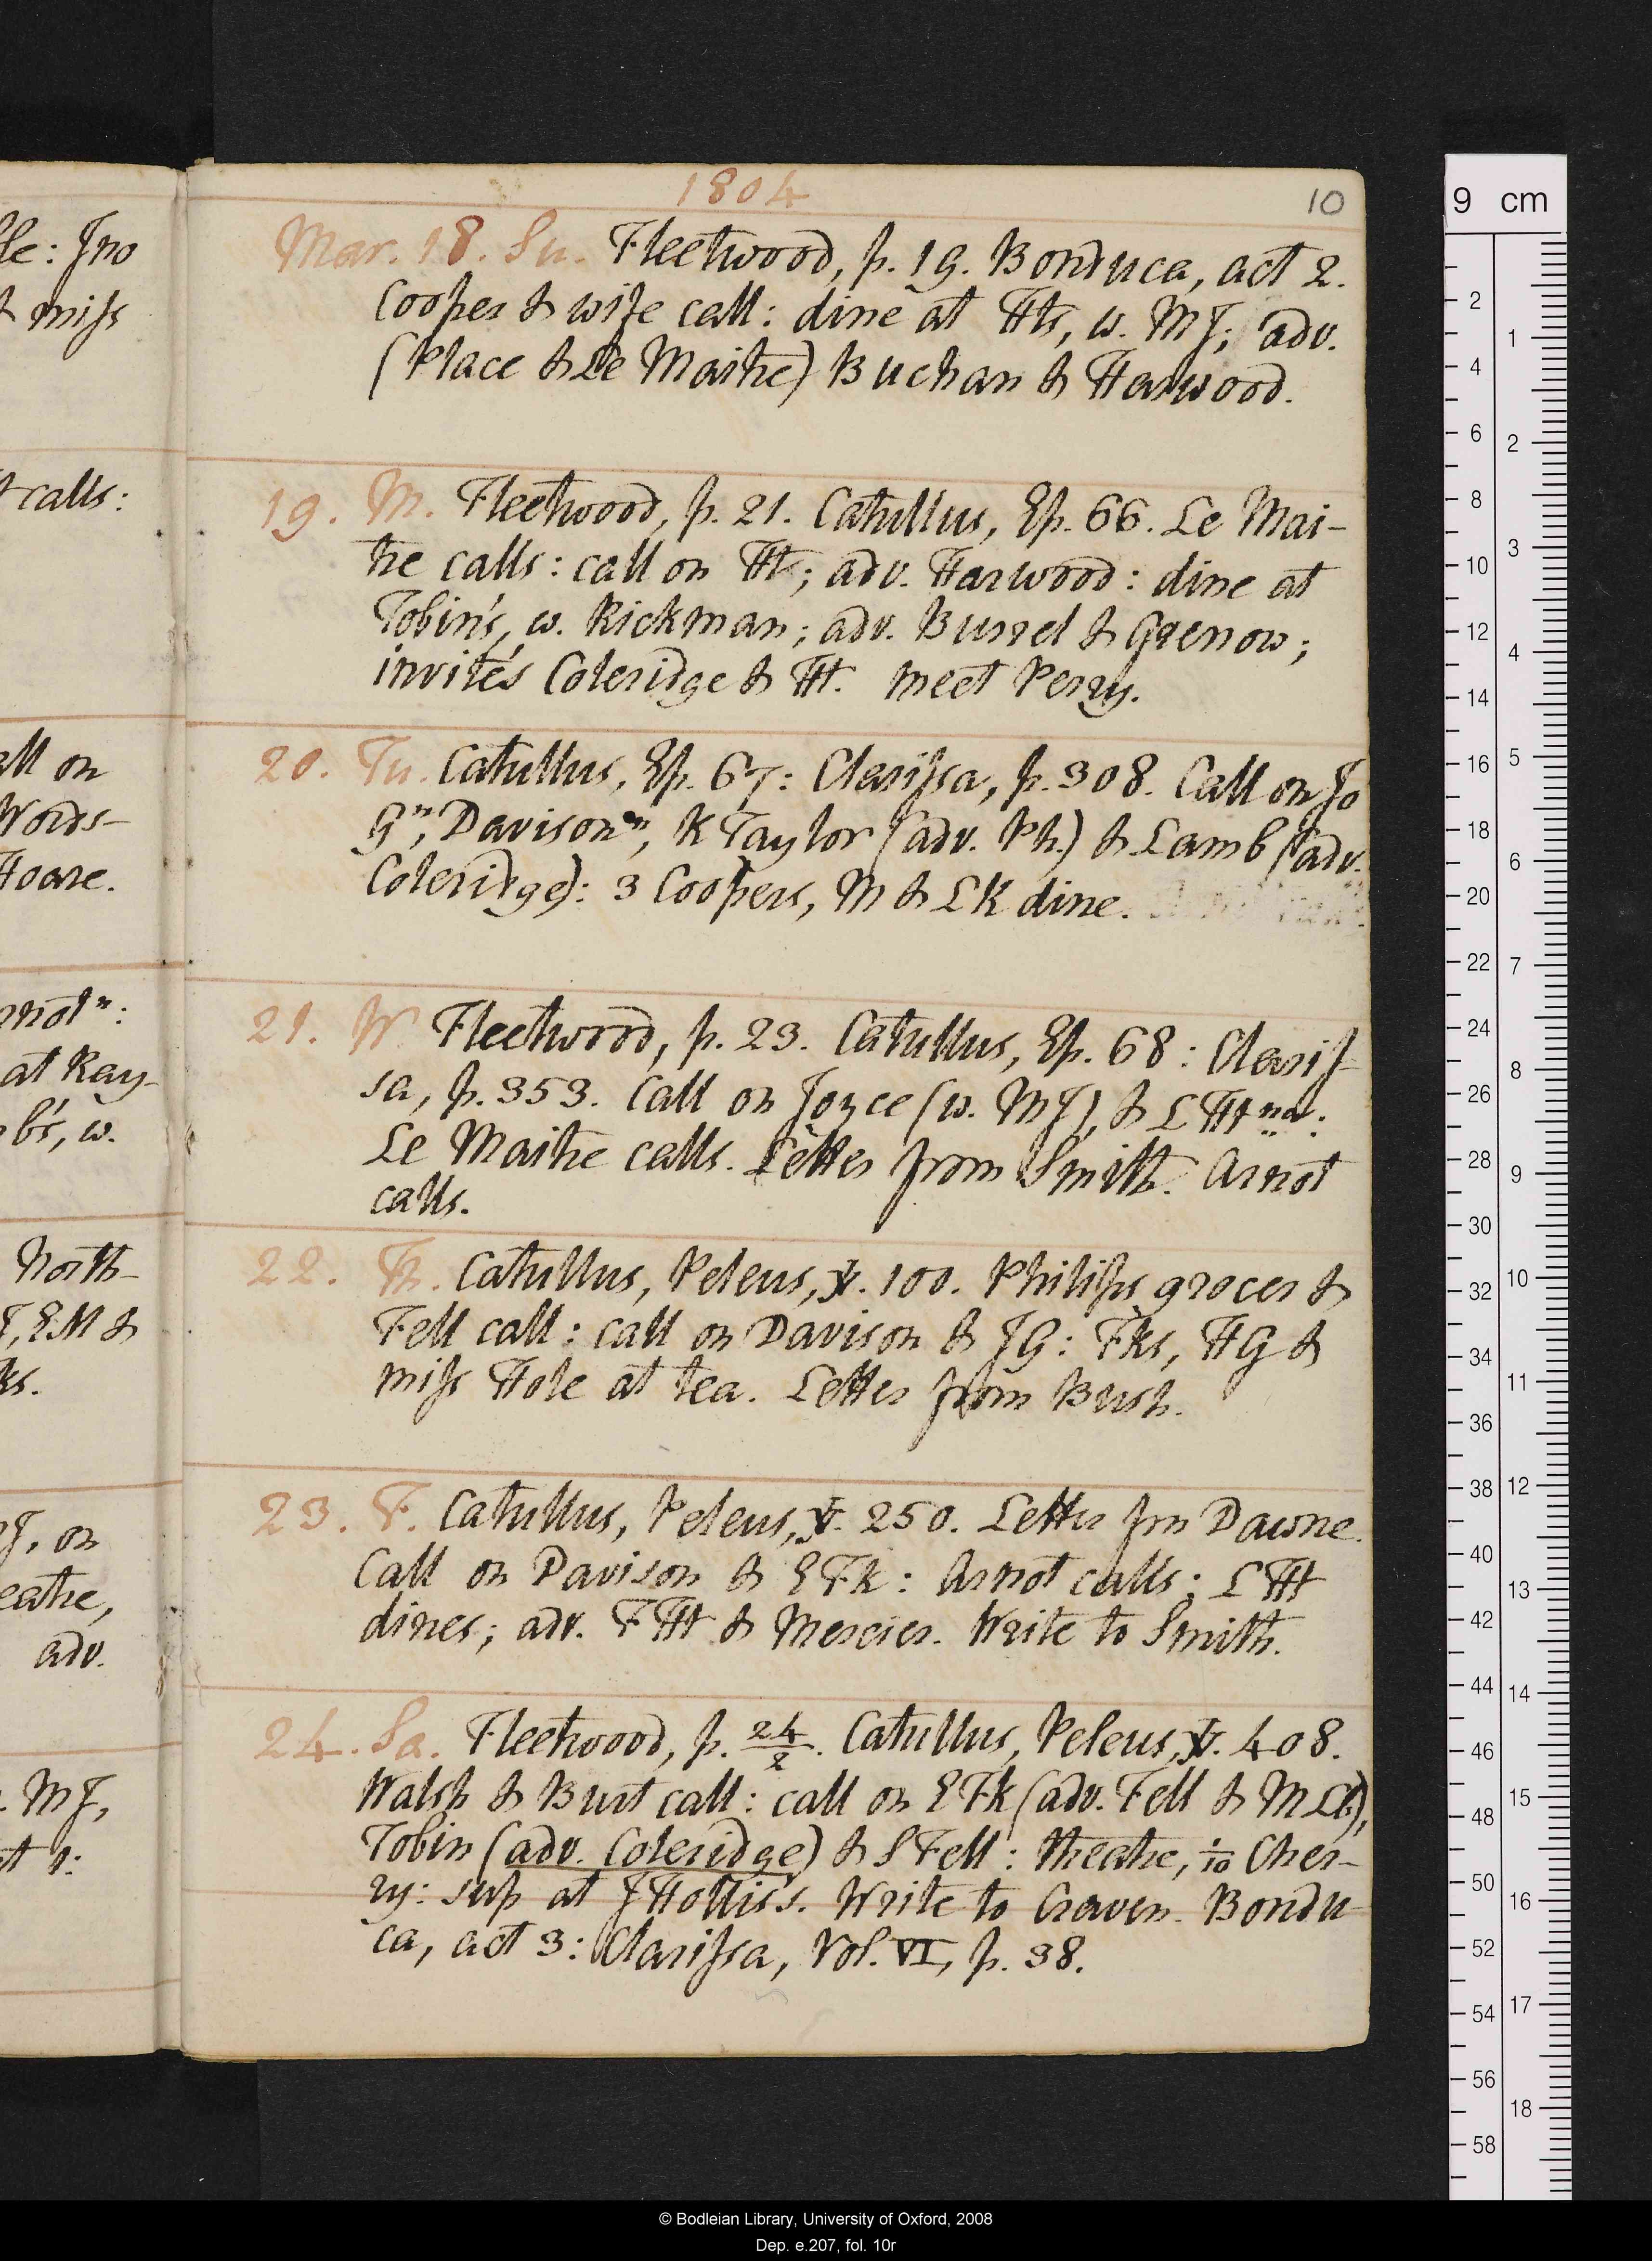 fle: Jno
& miss
t calls:
all on
Words-
Hoare.
rnotⁿ:
at Ray-
b's, w.
North-
J, EM &
ks.
J, on
eatre,
adv.
. MJ,
ct 1:
1804
10
Mar. 18. Su. Fleetwood, p. 19. Bonduca, act 2.
Cooper & wife call: dine at Hts, w. MJ; adv.
(Place & Le Maitre) Buchan & Harwood.
19. M. Fleetwood, p. 21. Catullus, Ep. 66. Le Mai-
tre calls: call on Ht; adv. Harwood: dine at
Tobin's, w. Rickman; adv. Burrel & Grenow;
invités Coleridge & Ht. meet Perry.
20. Tu. Catullus, Ep. 67: Clarissa, p. 308. Call on Jo
Gⁿ, Davisonⁿ, R Taylor (adv. Ph.) & Lamb (adv.
Coleridge): 3 Coopers, M & LK dine.
21. W. Fleetwood, p. 23. Catullus, Ep. 68: Claris-
sa, p. 353. Call on Joyce (w. MJ), & LHt ⁿᵃ:
Le Maitre calls. Letter from Smith. Arnot
calls.
22. Th. Catullus, Peleus, v. 100. Philips grocer &
Fell call: call on Davison & JG: Fks, HG &
miss Hole at tea. Letter from Bush.
23. F. Catullus, Peleus, v. 250. Letter fm Dawne.
Call on Davison & EFk: Arnot calls; LHt
dines; adv. FHt & Mercier. Write to Smith.
24. Sa. Fleetwood, p. 24/2. Catullus, Peleus, v. 408.
Walsh & Burt call: call on EFk (adv. Fell & MLB),
Tobin (adv. Coleridge) & S Fell: theatre, ⅟₁₀ Cher-
ry: sup at J Hollis's. Write to Craven. Bondu-
ca, act 3: Clarissa, Vol. VI, p. 38.
9 cm
2
4
6
8
10
12
14
16
18
20
22
24
26
28
30
32
34
36
38
40
42
44
46
48
50
52
54
56
58
1
2
3
4
5
6
7
8
9
10
11
12
13
14
15
16
17
18
© Bodleian Library, University of Oxford, 2008
Dep. e.207, fol. 10r